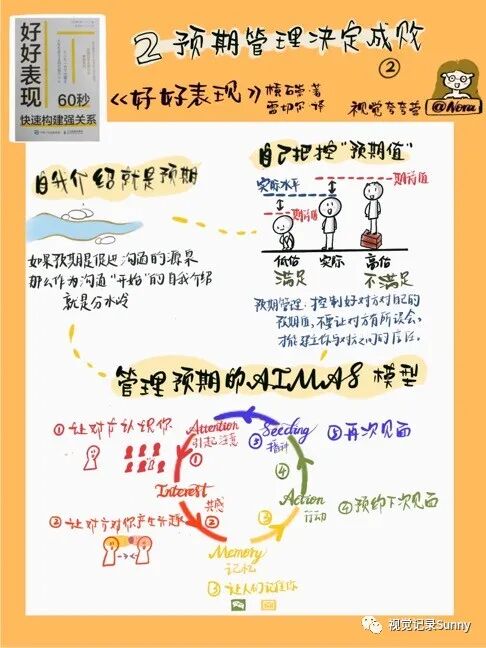 好好表现
60秒
快速构建强关系
2 预期管理决定成败
②
《好好表现》
视觉夸夸芸
@Nora
自我介绍就是预期
如果预期是促进沟通的源泉
那么作为沟通“开始”的自我介绍
就是分水岭
自己把控“预期值”
实际水平
期待值
期待值
低估
实际
高估
满足
不满足
预期管理:控制好对方对自己的
预期值,不要让对方有所误会,
才能建立你与对方之间的信任。
管理预期的AIMAS模型
①让对方认识你
Attention
引起注意
①
Interest
共感
②
②让对方对你产生兴趣
Memory
记忆
③
③让人们记住你
Action
行动
④
④预约下次见面
Seeding
播种
⑤
⑤再次见面
视觉记录Sunny